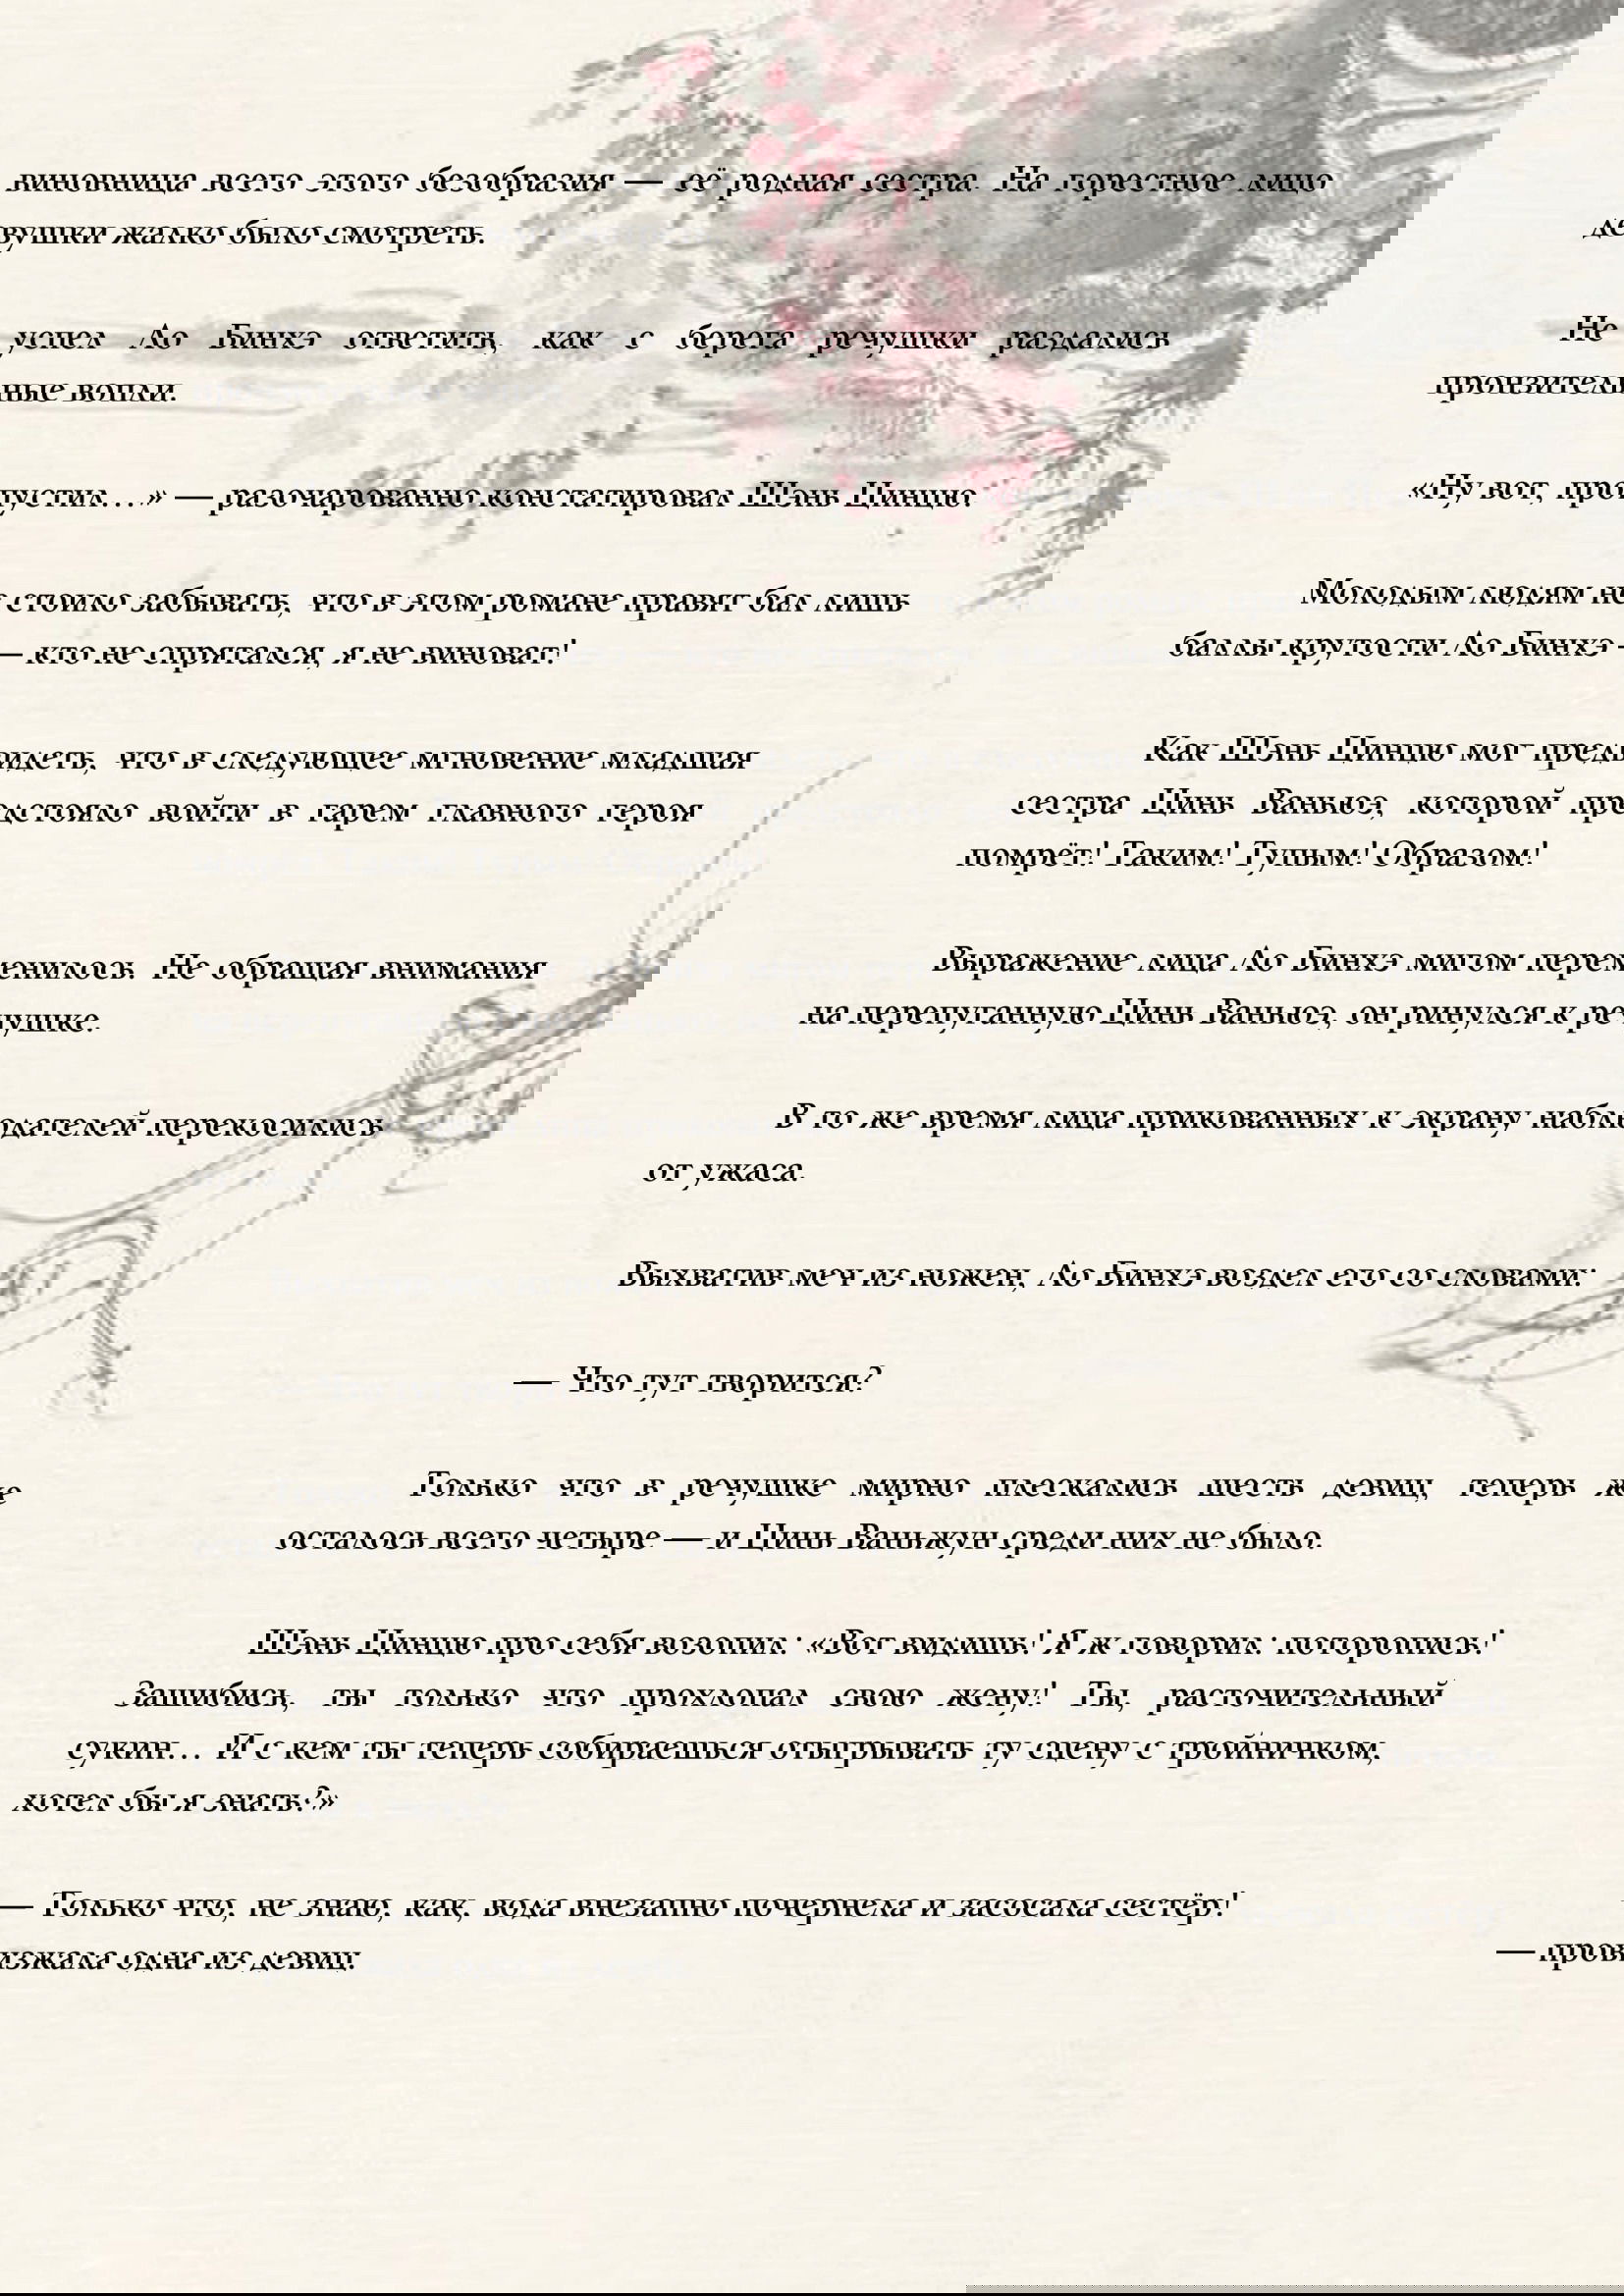 виновница всего этого безобразия — её родная сестра. На горестное лицо
девушки жалко было смотреть.
Не успел Ао Бинхэ ответить, как с берега речушки раздались
пронзительные вопли.
«Ну вот, пропустил…» — разочарованно констатировал Шэнь Цинцю.
Молодым людям не стоило забывать, что в этом романе правят бал лишь
баллы крутости Ао Бинхэ — кто не спрятался, я не виноват!
Как Шэнь Цинцю мог предвидеть, что в следующее мгновение младшая
сестра Цинь Ваньюэ, которой предстояло войти в гарем главного героя
помрёт! Таким! Тупым! Образом!
Выражение лица Ао Бинхэ мигом переменилось. Не обращая внимания
на перепуганную Цинь Ваньюэ, он ринулся к речушке.
В то же время лица прикованных к экрану наблюдателей перекосились
от ужаса.
Выхватив меч из ножен, Ао Бинхэ воздел его со словами:
— Что тут творится?
Только что в речушке мирно плескались шесть девиц, теперь же
осталось всего четыре — и Цинь Ваньжун среди них не было.
Шэнь Цинцю про себя возопил: «Вот видишь! Я ж говорил: поторопись!
Зашибись, ты только что прохлопал свою жену! Ты, расточительный
сукин… И с кем ты теперь собираешься отыгрывать ту сцену с тройничком,
хотел бы я знать?»
— Только что, не знаю, как, вода внезапно почернела и засосала сестёр!
— провизжала одна из девиц.